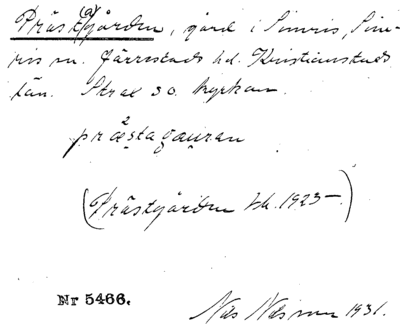 Präst(a)gården, gård i Simris, Sim-
ris sn. Järrestads hd. Kristianstads
län. Strax so. kyrkan.
præ²stagauran
(Prästgården Jdb. 1925–)
Nr 5466.
Nils Nilsson 1931.